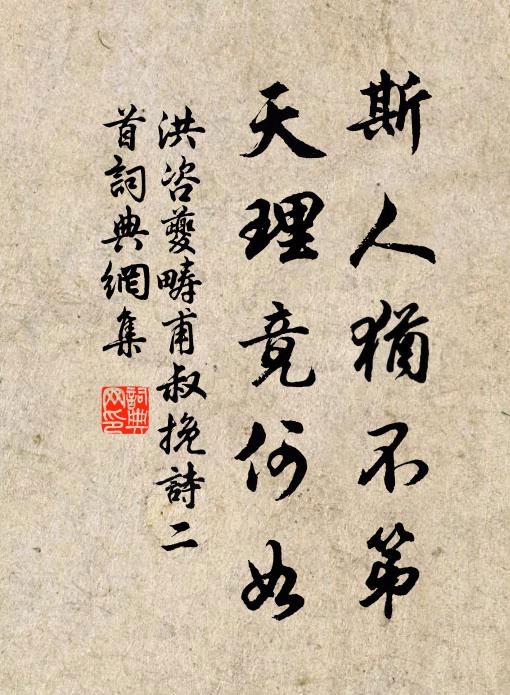 斯人猶不第
天理竟何如
洪咨夔畴甫叔挽詩二
首詞典網集
詞典网印